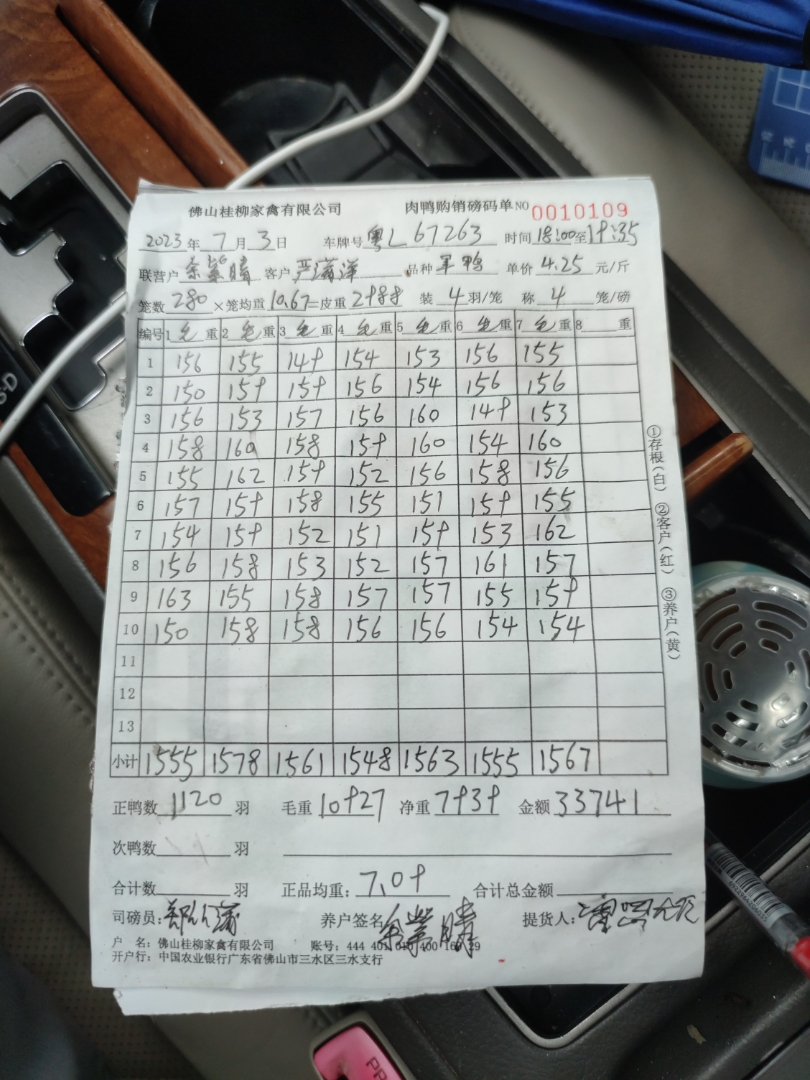 佛山桂柳家禽有限公司 肉鸭购销磅码单 NO 0010109
2023年7月3日 车牌号 粤L67263 时间 18:00至19:35
联营户 客户 品种 单价 4.25 元/斤
笼数 280 ×笼均重 10.67=皮重 2988 装 4 羽/笼 称 4 笼/磅
编号 1 毛重 2 毛重 3 毛重 4 毛重 5 毛重 6 毛重 7 毛重 8 重
1 156 155 149 154 153 156 155
2 150 159 159 156 154 156 156
3 156 153 157 156 160 149 153
4 158 160 158 159 160 154 160
5 155 162 159 152 156 158 156
6 157 159 158 155 151 159 155
7 154 159 152 151 159 153 162
8 156 158 153 152 157 161 157
9 163 155 158 157 157 155 159
10 150 158 158 156 156 154 154
11
12
13
小计 1555 1578 1561 1548 1563 1555 1567
①存根(白) ②客户(红) ③养户(黄)
正鸭数 1120 羽 毛重 10927 净重 7939 金额 33741
次鸭数 羽
合计数 羽 正品均重: 7.09 合计总金额
司磅员: 养户签名 提货人:
户 名: 佛山桂柳家禽有限公司 账号: 444
开户行: 中国农业银行广东省佛山市三水区三水支行
PP